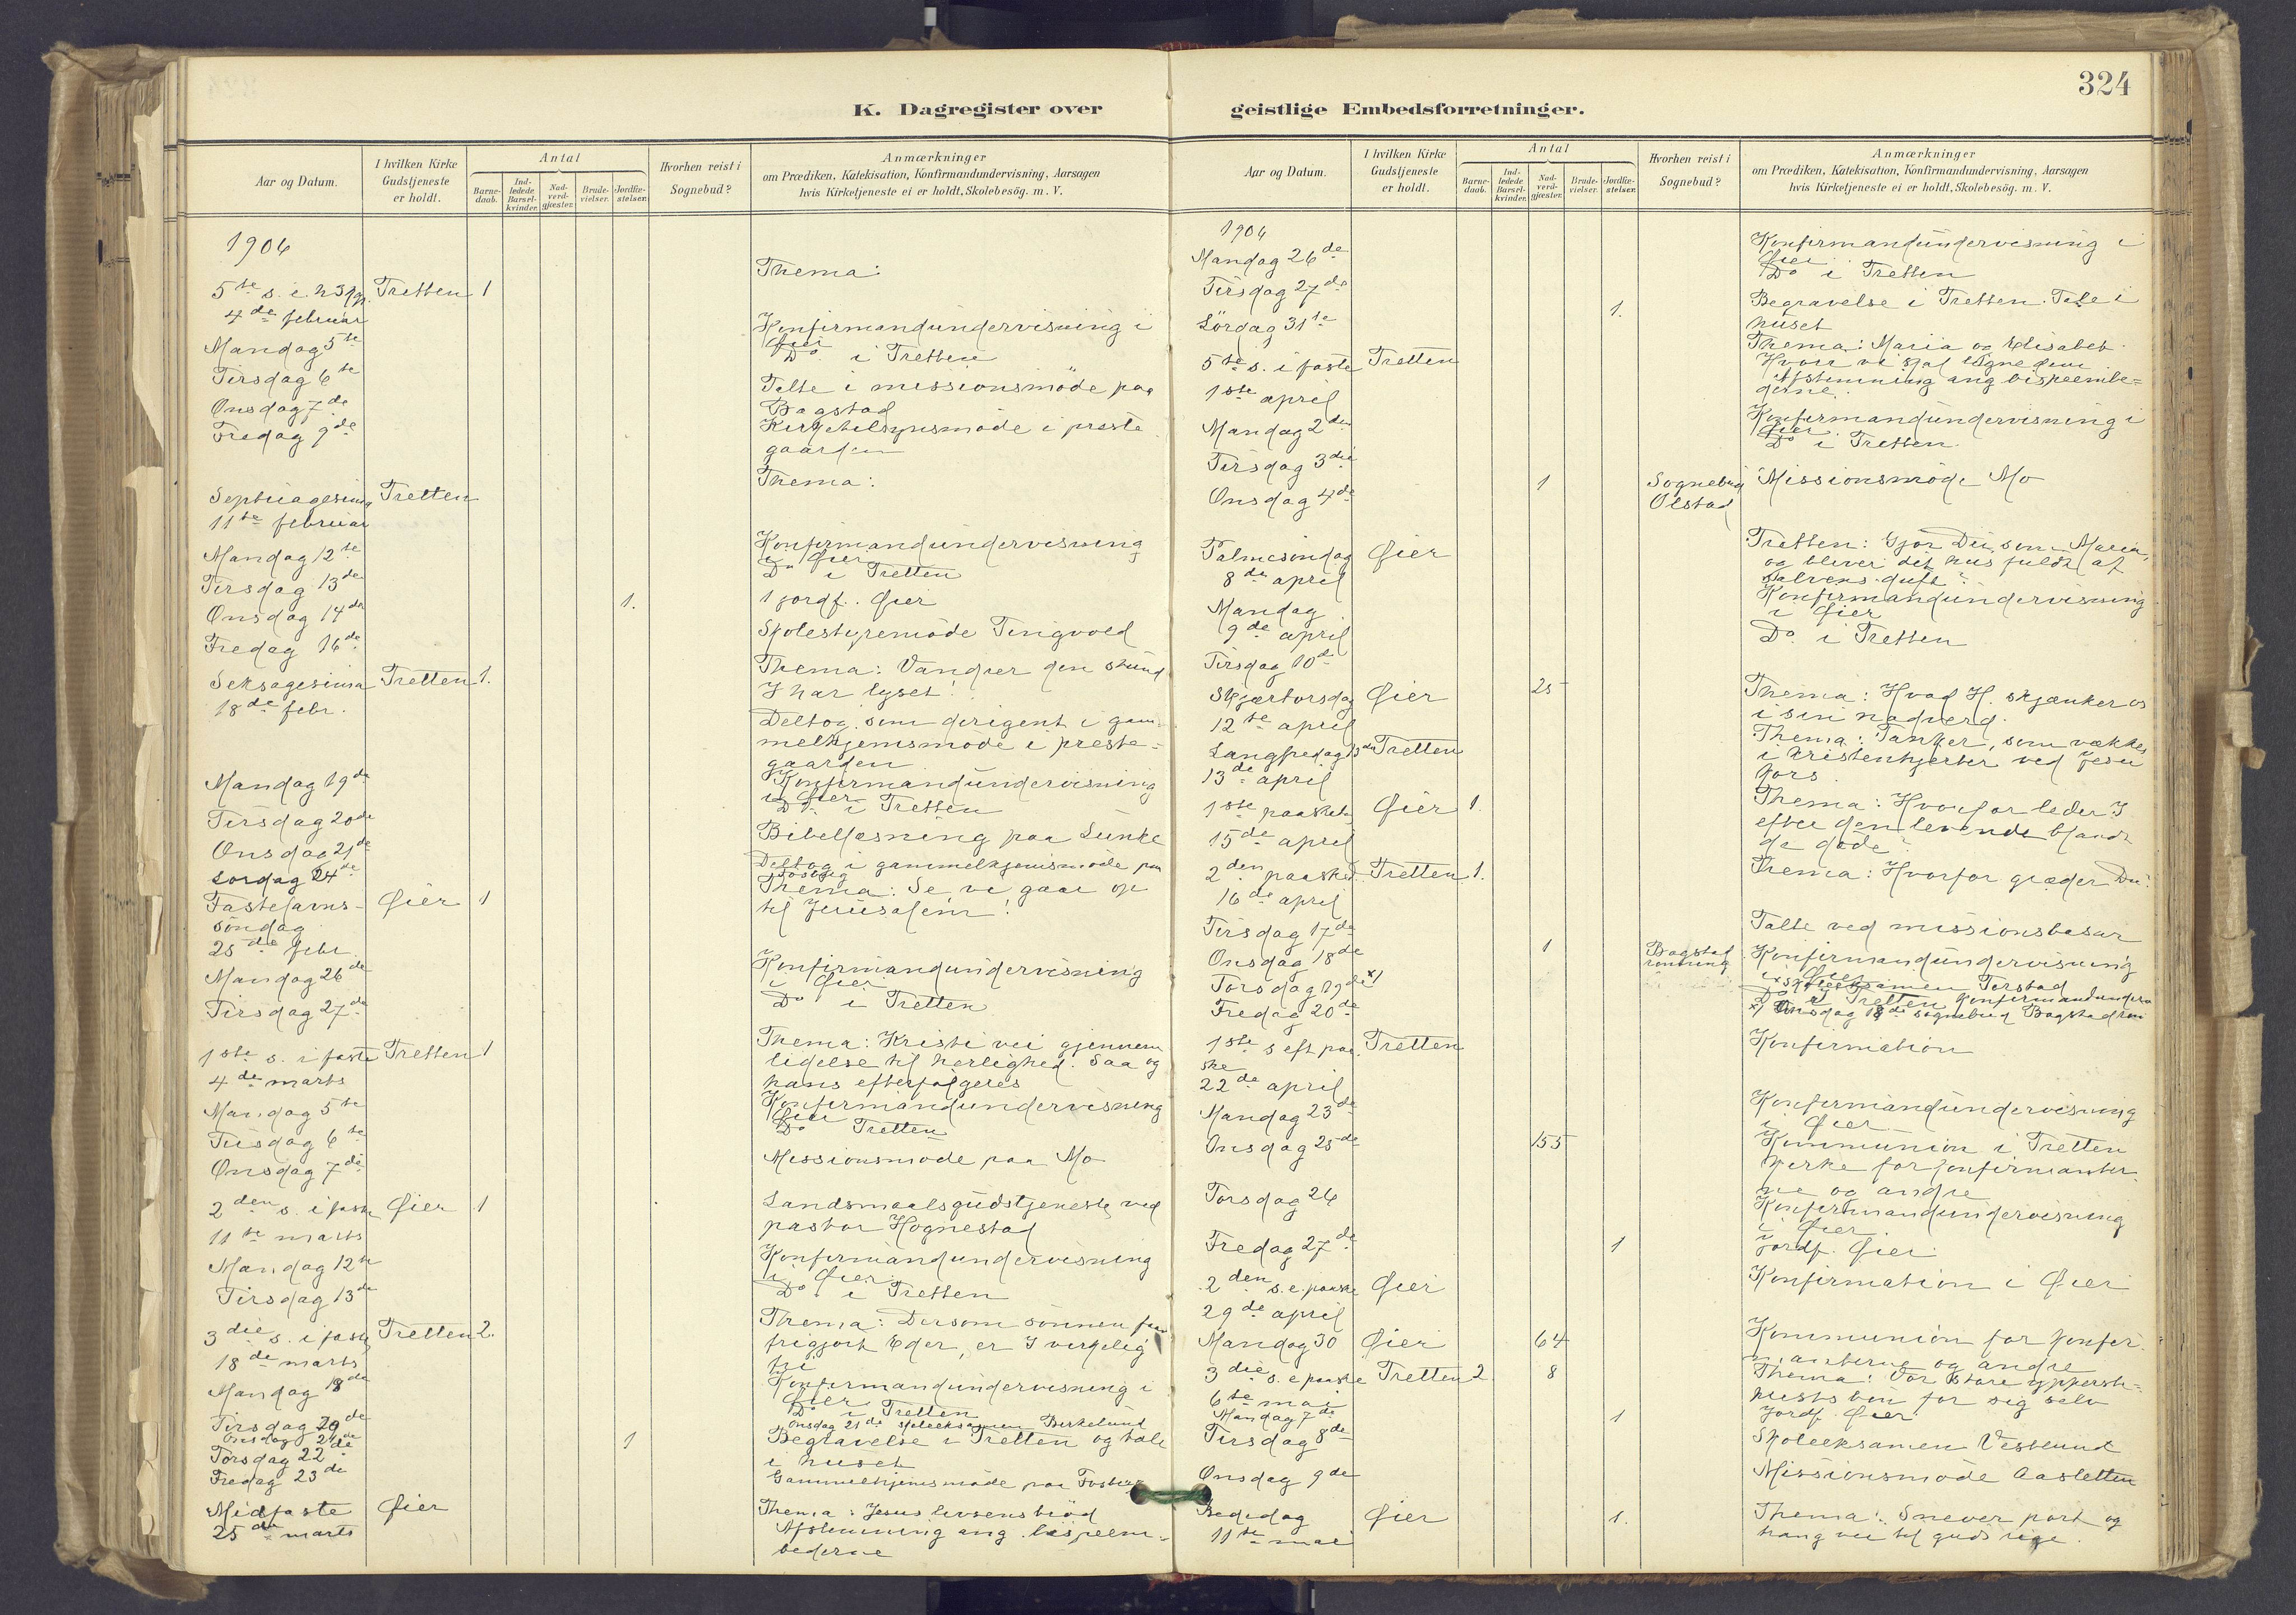 324
K. Dagregister over geistlige Embedsforretninger.
Aar og Datum.
I hvilken Kirke Gudstjeneste er holdt.
Antal
Barne-daab.
Ind-ledede Barsel-kvinder.
Nad-verd-gjæster.
Brude-vielser.
Jordfæ-stelser.
Hvorhen reist i Sognebud?
Anmærkninger
om Prædiken, Katekisation, Konfirmandundervisning, Aarsagen
hvis Kirketjeneste ei er holdt, Skolebesög. m. V.
1906
Thema:
5te s. e. h3kgr. Tretten 1
4de februar
Konfirmandundervisning i
Mandag 5te Øier
Do i Tretten
Tirsdag 6te
Talte i missionsmöde paa
Onsdag 7de Bagstad
Fredag 9de Kirketilsynsmöde i preste
gaarden
Septuagesima Tretten Thema:
11te februar
Mandag 12te Konfirmandundervisning
i Øier
Tirsdag 13de Do i Tretten
Onsdag 14de 1. 1 jordf. Øier
Fredag 16de Skolestyremöde Tingvold
Seksagesima Tretten 1. Thema: Vandrer den stund
18de febr. I har lyset!
Deltog som dirigent i gam-
melhjemsmöde i preste-
gaarden
Mandag 19de Konfirmandundervisning
i Øier
Tirsdag 20de Do i Tretten
Onsdag 21de Bibellæsning paa Lunke
Lördag 24de Deltog i gammelhjemsmöde paa
Fosberg
Fastelavns- Øier 1 Thema: Se vi gaar op
söndag til Jerusalem!
25de febr.
Mandag 26de Konfirmandundervisning
i Øier
Tirsdag 27de Do i Tretten
1ste s. i faste Tretten 1 Thema: Kristi vei gjennem
4de marts lidelse til herlighed. Saa og
hans efterfølgeres
Mandag 5te Konfirmandundervisning
Øier
Tirsdag 6te Do Tretten
Onsdag 7de Missionsmöde paa Mo
2den s. i faste Øier 1 Landsmaalsgudstjeneste ved
11te marts pastor Hognestad
Mandag 12te Konfirmandundervisning
i Øier
Tirsdag 13de Do i Tretten
3die s. i faste Tretten 2. Thema: Dersom sönnen faar
18de marts frigjort Eder, er I virkelig
fri
Mandag 18de Konfirmandundervisning i
Øier
Tirsdag 20de Do i Tretten
Onsdag 21de Onsdag 21de skoleeksamen Birkelund
Torsdag 22de 1 Begravelse i Tretten og tale
i huset
Fredag 23de Gammelhjemsmöde paa Fosberg
Midfaste Øier Thema: Jesus livsens bröd
25de marts Afstemning ang. bispeem-
bederne
Aar og Datum.
I hvilken Kirke Gudstjeneste er holdt.
Antal
Barne-daab.
Ind-ledede Barsel-kvinder.
Nad-verd-gjæster.
Brude-vielser.
Jordfæ-stelser.
Hvorhen reist i Sognebud?
Anmærkninger
om Prædiken, Katekisation, Konfirmandundervisning, Aarsagen
hvis Kirketjeneste ei er holdt, Skolebesög. m. V.
1906
Mandag 26de Konfirmandundervisning i
Øier
Tirsdag 27de Do i Tretten
Lördag 31te 1. Begravelse i Tretten. Tale i
huset
5te s. i faste Tretten Thema: Maria og Elisabet.
1ste april Hvori vi skal ligne dem.
Afstemning ang bispeembe-
derne.
Mandag 2den Konfirmandundervisning i
Øier
Tirsdag 3die Do i Tretten
Onsdag 4de 1 Sognebud Olstad Missionsmöde Mo
Palmesöndag Øier Tretten: Gjør Du, som Maria,
8de april og bliver dit hus fuldt af
salvens duft?
Mandag Konfirmandundervisning
9de april i Øier
Tirsdag 10de Do i Tretten
Skjærtorsdag Øier 25 Thema: Hvad H. skjænker os
12te april i sin nadverd.
Langfredag 13de Tretten Thema: Tanker, som vækkes
13de april i kristenhjerter ved Jesu
kors.
1ste paasked. Øier 1. Thema: Hvorfor leder I
15de april efter den levende blandt
de døde?
2den paasked. Tretten 1. Thema: Hvorfor græder Du?
16de april
Tirsdag 17de Talte ved missionsbasar
Onsdag 18de 1 Bagstad rönning Konfirmandundervisning
i Øier
Torsdag 19de x) x skoleeksamen Torstad
Fredag 20de Do i Tretten konfirmandunderv
x) Onsdag 18de sognebud Bagstadrön
1ste s eft paa Tretten Konfirmation
ske
22de april
Mandag 23de Konfirmandundervisning
i Øier
Onsdag 25de 155 Kommunion i Tretten
kirke for konfirmanter-
ne og andre
Torsdag 26 Konfirmandundervisning
i Øier
Fredag 27de 1 Jordf. Øier
2den s. e. paaske Øier Konfirmation i Øier
29de april
Mandag 30 Øier 64 Kommunion for konfir-
manterne og andre
3die s. e paaske Tretten 2 8 Thema: Vor store ypperste-
6te mai prests bön for sig selv
Mandag 7de 1 Jordf. Øier
Tirsdag 8de Skoleeksamen Vestlund
Onsdag 9de Missionsmöde Aasletten
Bededag Øier 1. Thema: Snever port og
11te mai trang vei til guds rige.